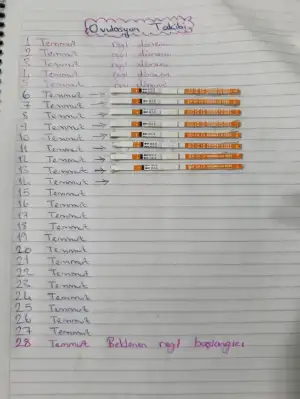 Ovulasyon Takibi
1 Temmuz regl dönemi
2 Temmuz regl dönemi
3 Temmuz regl dönemi
4 Temmuz regl dönemi
5 Temmuz regl dönemi
6 Temmuz →
7 Temmuz →
8 Temmuz →
9 Temmuz →
10 Temmuz →
11 Temmuz →
12 Temmuz →
13 Temmuz →
14 Temmuz →
15 Temmuz
16 Temmuz
17 Temmuz
18 Temmuz
19 Temmuz
20 Temmuz
21 Temmuz
22 Temmuz
23 Temmuz
24 Temmuz
25 Temmuz
26 Temmuz
27 Temmuz
28 Temmuz Beklenen regl başlangıcı